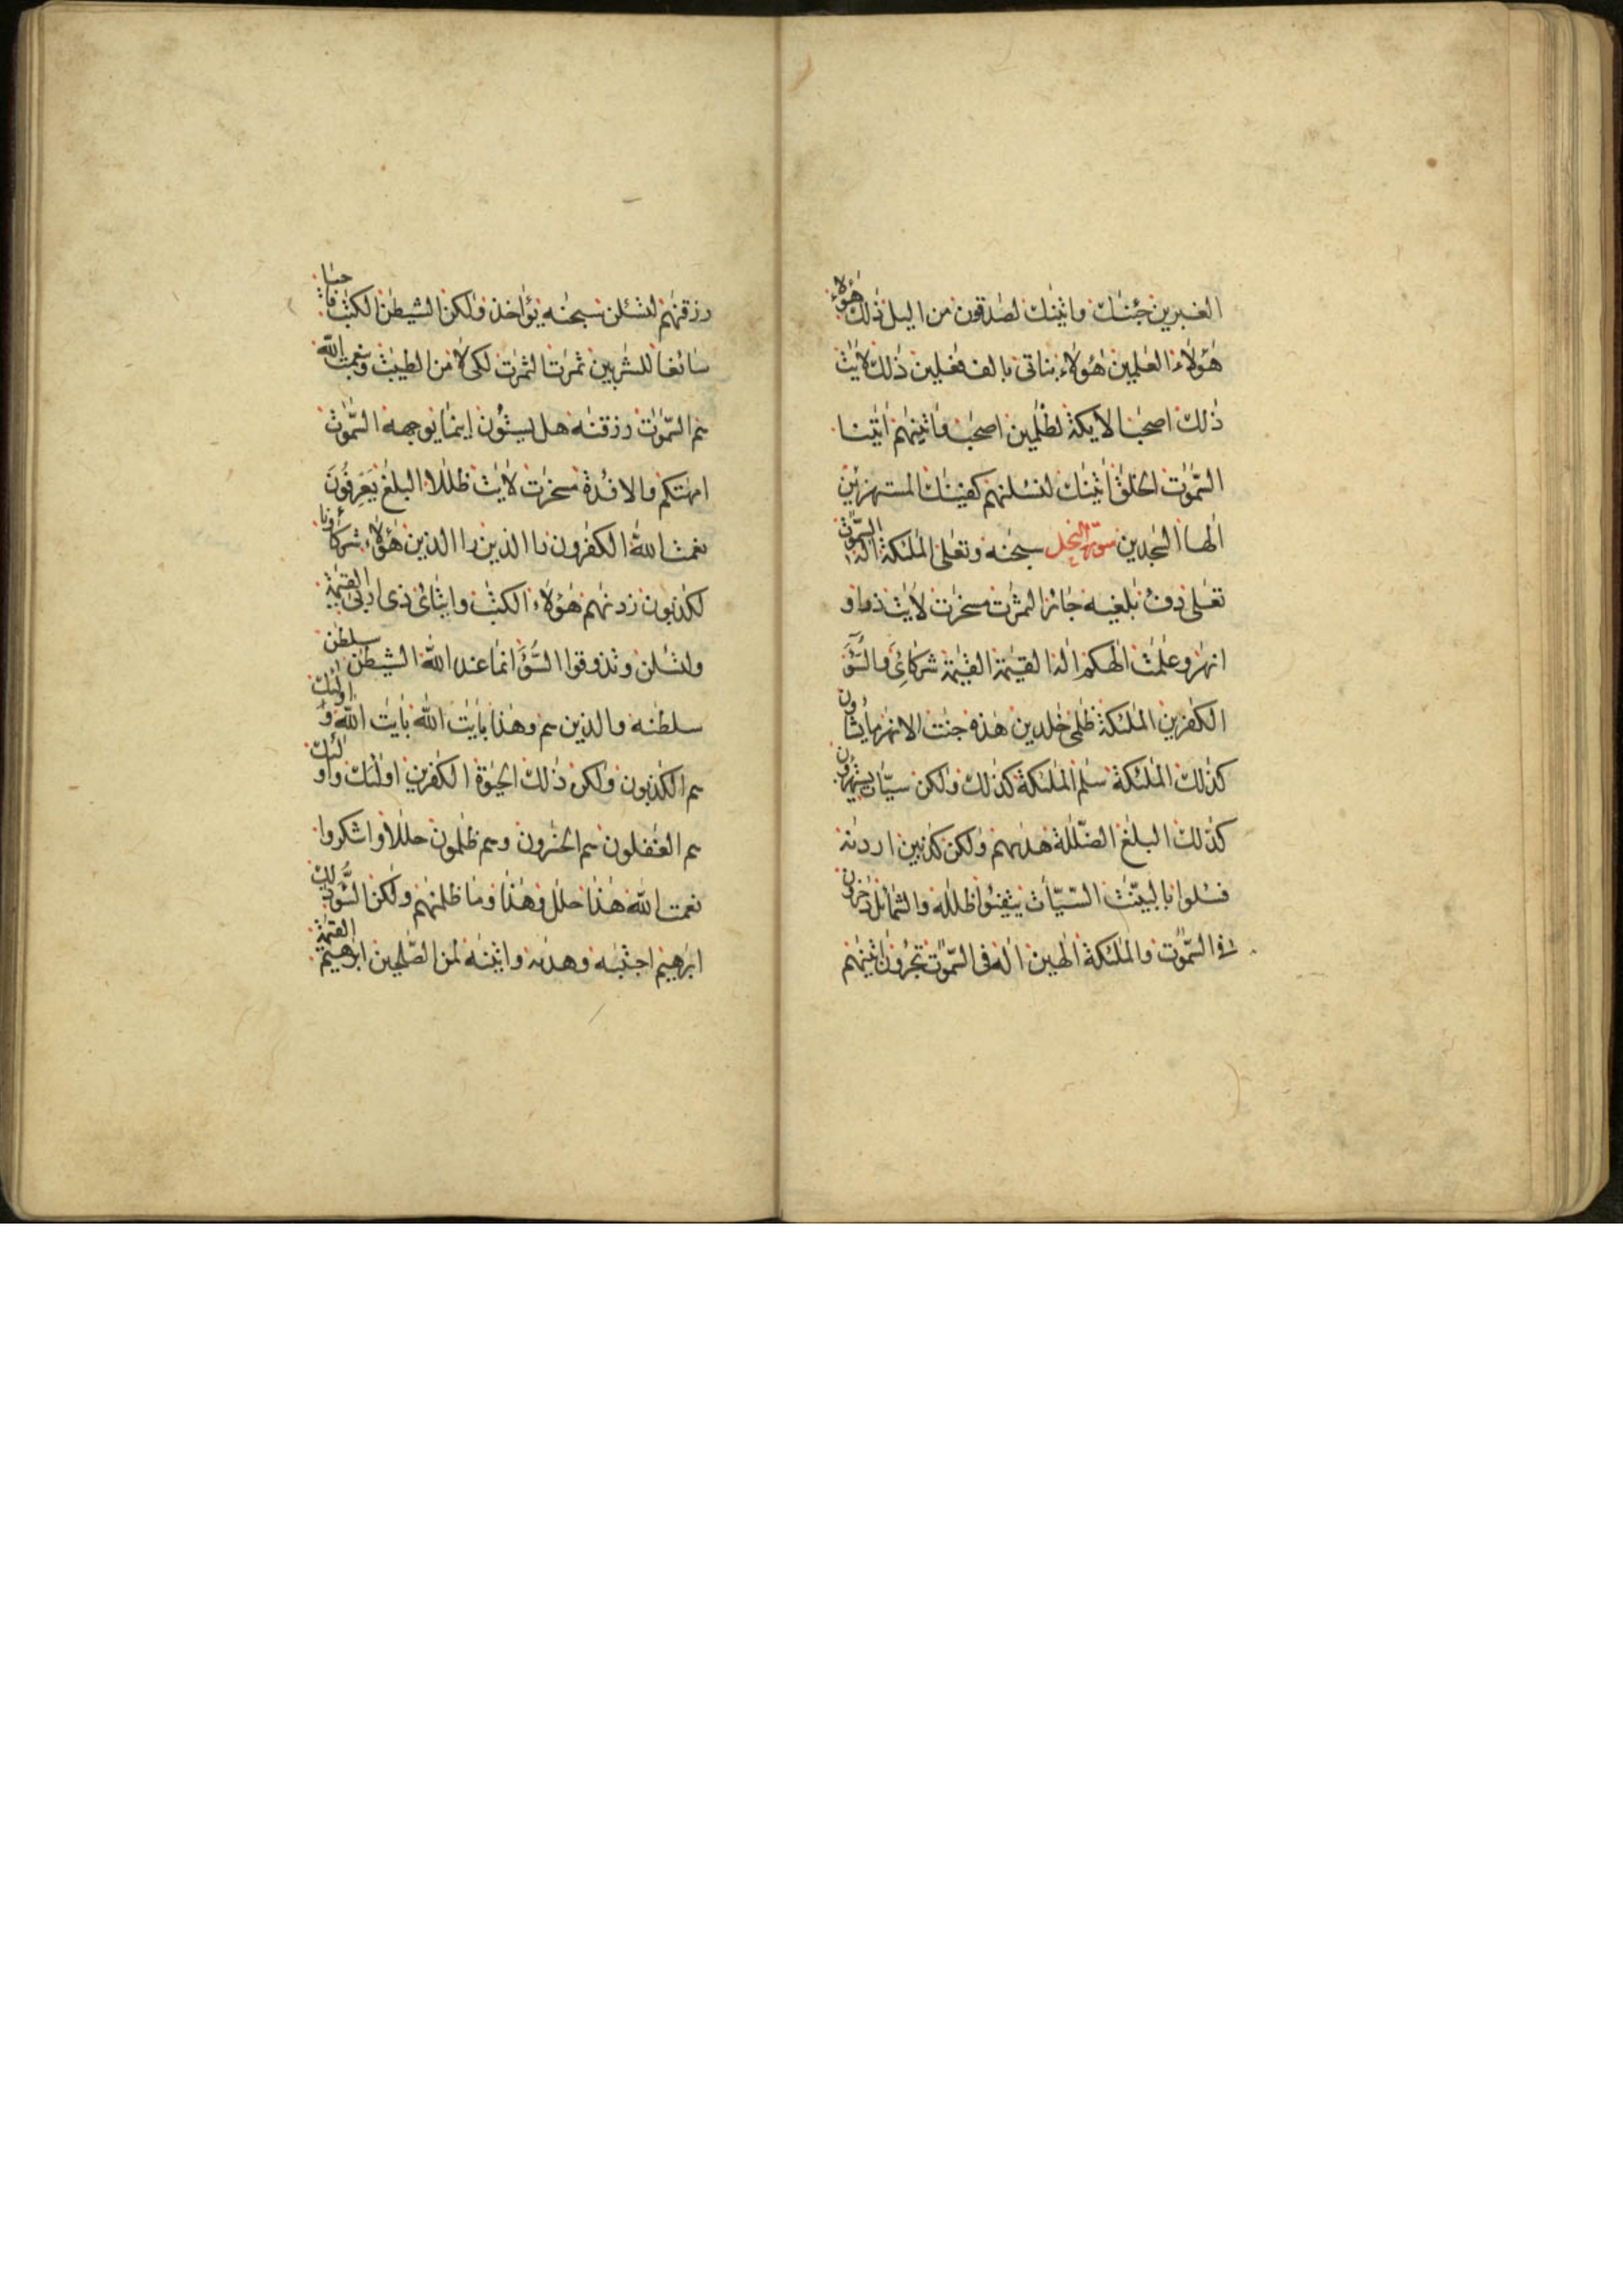 الغبرين جئنك واتينك لصدقون من اليل ذلك هؤلاء
هؤلاء العلمين هؤلاء بناتى بالف فعلين ذلك لايت
ذلك اصحب الايكة لظلمين اصحب واتينهم اتينا
السموت الخلق اتينك لنسئلنهم كفينك المستهزئين
الها السجدين سورة النحل سبحنه وتعلى الملئكة اله السموت
تعلى دفء بلغيه جائر الثمرت مسخرت لايت ذماو
انهر وعلمت الهكم اله القيمة القيمة شركائى والسوء
الكفرين الملئكة ظلمى خلدين هذه جنت الانهر مايشاؤن
كذلك الملئكة سلم الملئكة كذلك ولكن سيات يستهزؤن
كذلك البلغ الضللة هديهم ولكن كذبين اردنه
فسئلوا بالبينت السيات يتفيؤا ظلله والشمائل دخرون
فى السموت والملئكة الهين اله فى السموت تجرون اتينهم
رزقنهم لتسئلن سبحنه يؤاخذ ولكن الشيطن الكتب فاحيا
سائغا للشربين ثمرت الثمرت لكى لا من الطيبت وبنعمت الله
هم السموت رزقنه هل يستون اينما يوجهه السموت
امهتكم والافئدة مسخرت لايت ظللا البلغ يعرفون
نعمت الله الكفرون را الذين را الذين هؤلاء شركاؤنا
لكذبون زدنهم هؤلاء الكتب وايتائ ذى اربى القيمة
ولتسئلن وتذوقوا السوء انما عند الله الشيطن سلطن
سلطنه والذين هم وهذا بايت الله بايت الله واولئك
هم الكذبون ولكن ذلك الحيوة الكفرين اولئك واولئك
هم الغفلون هم الخسرون وهم ظلمون حللا واشكروا
نعمت الله هذا حلل وهذا وما ظلمنهم ولكن السوء ذلك
ابرهيم اجتبه وهديه واتينه لمن الصلحين ابرهيم القيمة